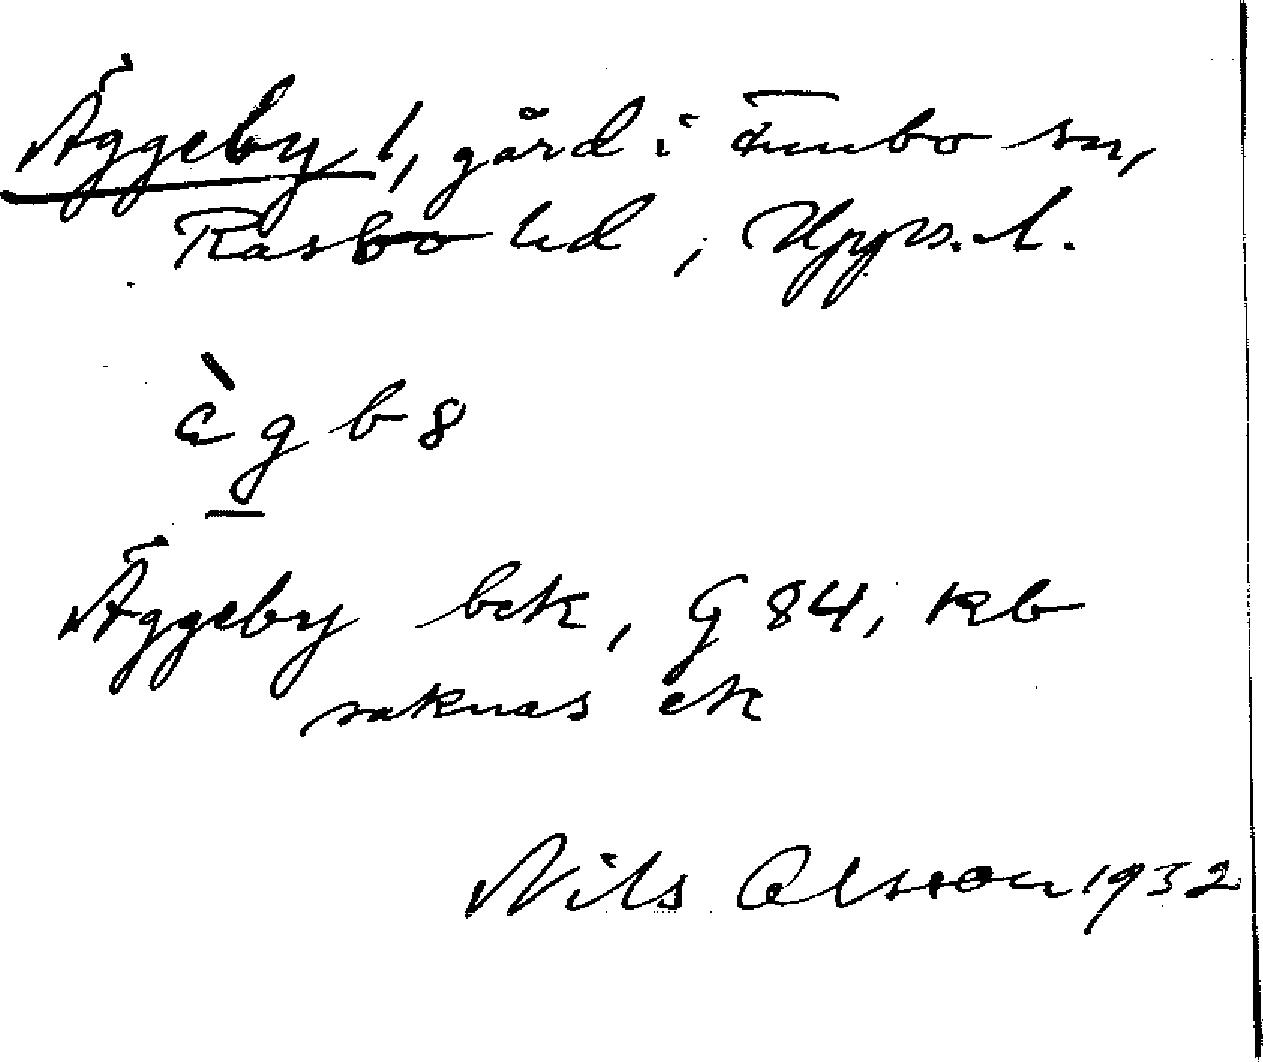 Äggeby 1, gård i Tuubo sn,
Rasbo hd, Upps. l.
ὲgb8
Äggeby bek, G 84, Kb
saknas ek
Nils Olsson 1932